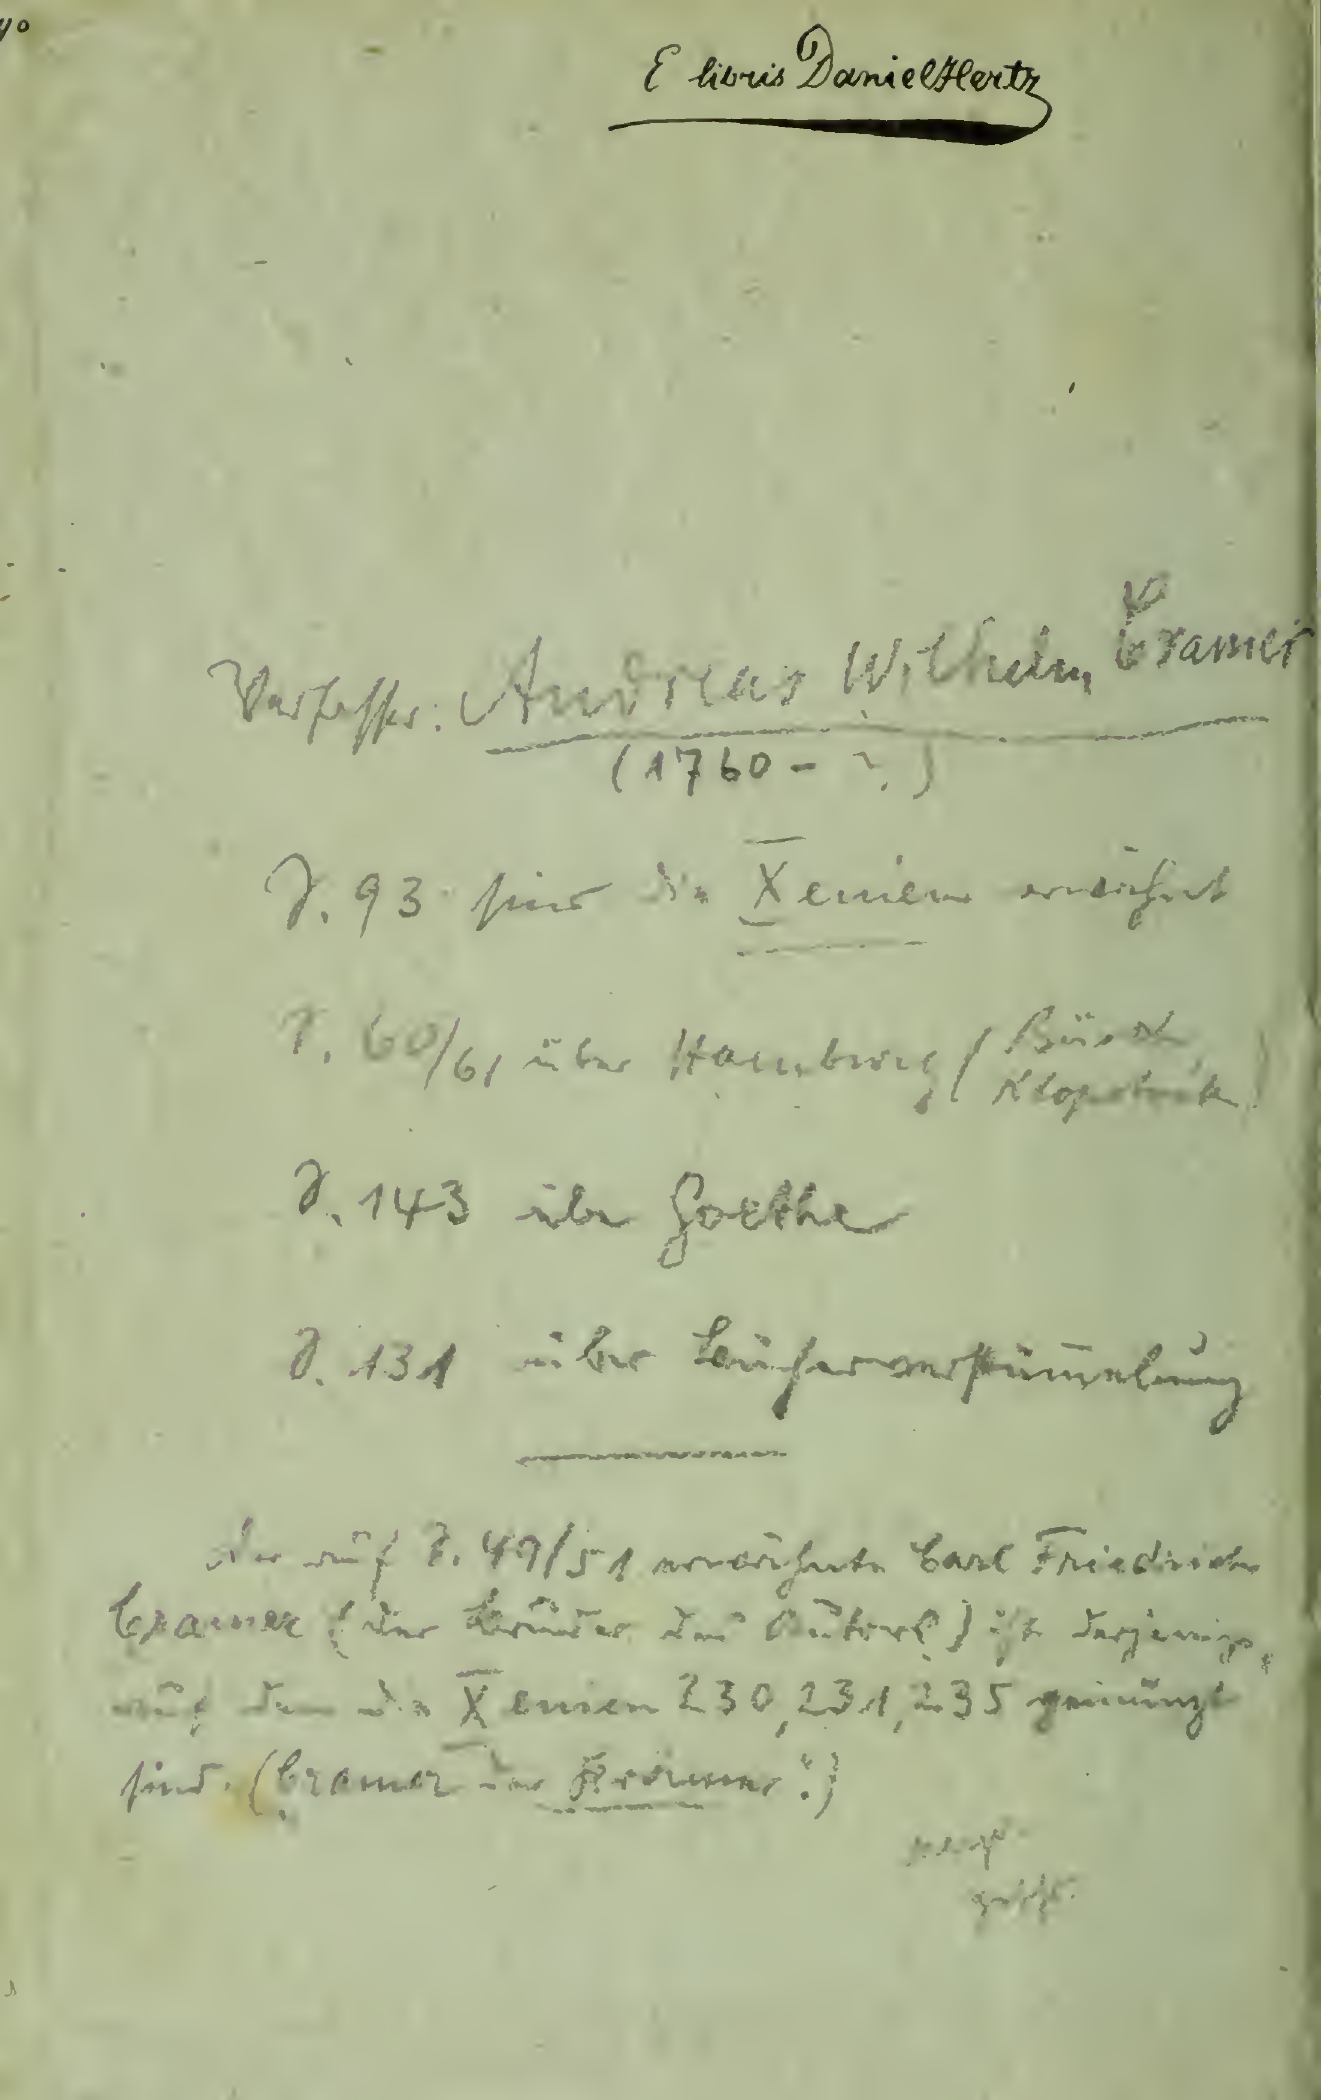 40
E libris Daniel Hertz
Verfasser: Andreas Wilhelm Cramer
(1760 - ?)
S. 93 sind die Xenien erwähnt
S. 60/61 über Hamburg (Büsch,
Klopstock)
S. 143 über Goethe
S. 131 über Bücherverstümmelung
Der auf S. 49/51 erwähnte Carl Friedrich
Cramer (der Bruder des Autors) ist derjenige,
auf den die Xenien 230, 231, 235 gemünzt
sind. (Cramer der Krämer!)